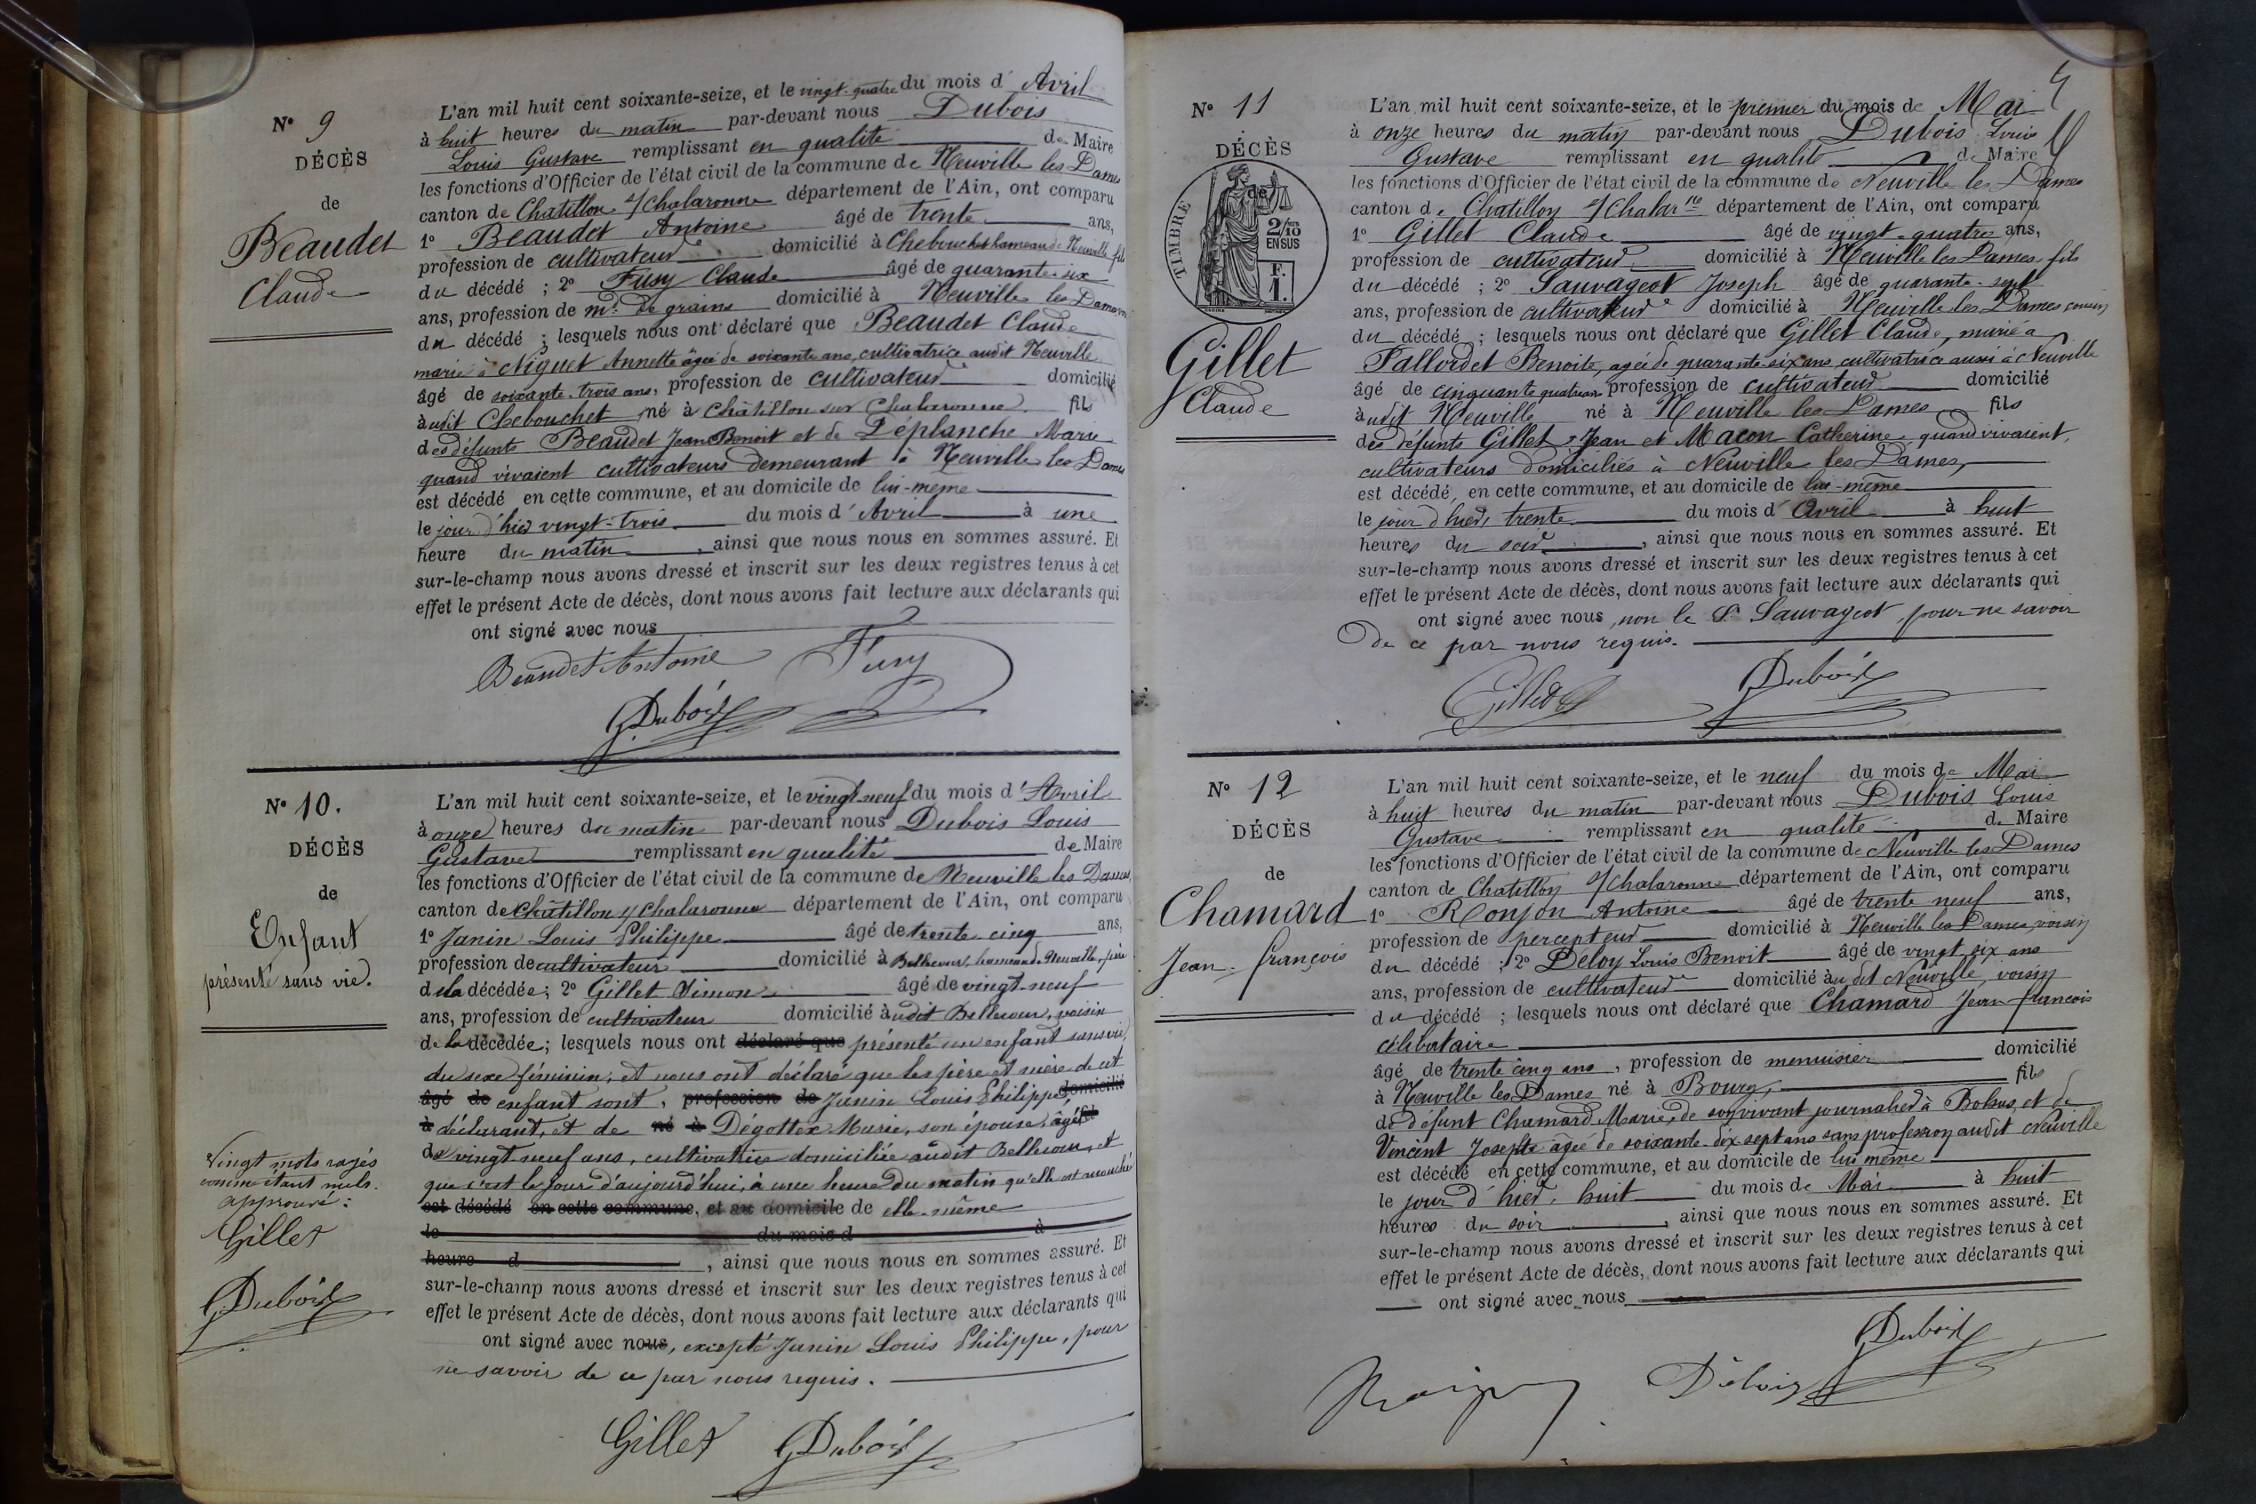 N° 9
DÉCÈS
de
Beaudet
Claude
L'an mil huit cent soixante-seize, et le vingt-quatre du mois d'Avril
à huit heures du matin par-devant nous Dubois
Louis Gustave remplissant en qualité de Maire
les fonctions d'Officier de l'état civil de la commune de Neuville les Dames
canton de Chatillon s/Chalaronne département de l'Ain, ont comparu
1° Beaudet Antoine âgé de trente ans,
profession de cultivateur domicilié à Chebouchet hameau de Neuville fils
du décédé ; 2° Fusy Claude âgé de quarante-six
ans, profession de md. de grains domicilié à Neuville les Dames
du décédé ; lesquels nous ont déclaré que Beaudet Claude
marié à Niguet Annette âgée de soixante ans, cultivatrice audit Neuville
âgé de soixante-trois ans, profession de cultivateur domicilié
audit Chebouchet né à Châtillon sur Chalaronne fils
des défunts Beaudet Jean Benoit et de Deplanche Marie
quand vivaient cultivateurs demeurant à Neuville les Dames
est décédé en cette commune, et au domicile de lui-même
le jour d'hier vingt-trois du mois d'Avril à une
heure du matin, ainsi que nous nous en sommes assuré. Et
sur-le-champ nous avons dressé et inscrit sur les deux registres tenus à cet
effet le présent Acte de décès, dont nous avons fait lecture aux déclarants qui
ont signé avec nous
Beaudet Antoine Fusy
G. Dubois
N° 10.
DÉCÈS
de
Enfant
présenté sans vie.
Vingt mots rayés
comme étant nuls.
approuvé :
Gillet
G Dubois
L'an mil huit cent soixante-seize, et le vingt-neuf du mois d'Avril
à onze heures du matin par-devant nous Dubois Louis
Gustave remplissant en qualité de Maire
les fonctions d'Officier de l'état civil de la commune de Neuville les Dames
canton de Châtillon s/ Chalaronne département de l'Ain, ont comparu
1° Janin Louis Philippe âgé de trente cinq ans,
profession de cultivateur domicilié à Bellecour, hameau de Neuville, père
de la décédée ; 2° Gillet Simon âgé de vingt-neuf
ans, profession de cultivateur domicilié audit Bellecour, voisin
de la décédée ; lesquels nous ont déclaré que présenté un enfant sans vie,
du sexe féminin, et nous ont déclaré que les père et mère de cet
âgé de enfant sont, profession de Janin Louis Philippe domicilié
à déclarant, et de né à Dégottex Marie, son épouse, âgée fil
de vingt-neuf ans, cultivatrice domiciliée audit Bellecour, et
que c'est le jour d'aujourd'hui, à une heure du matin qu'elle est accouchée
est décédé en cette commune, et au domicile de elle-même
le du mois d à
heure d , ainsi que nous nous en sommes assuré. Et
sur-le-champ nous avons dressé et inscrit sur les deux registres tenus à cet
effet le présent Acte de décès, dont nous avons fait lecture aux déclarants qui
ont signé avec nous, excepté Janin Louis Philippe, pour
ne savoir de ce par nous requis.
Gillet G Dubois
N° 11
DÉCÈS
de
TIMBRE
2/10
EN SUS
F.
1.
Gillet
Claude
L'an mil huit cent soixante-seize, et le premier du mois de Mai
à onze heures du matin par-devant nous Dubois Louis
Gustave remplissant en qualité de Maire
les fonctions d'Officier de l'état civil de la commune de Neuville les Dames
canton de Chatillon s/Chalarne département de l'Ain, ont comparu
1° Gillet Claude âgé de vingt-quatre ans,
profession de cultivateur domicilié à Neuville les Dames fils
du décédé ; 2° Sauvageot Joseph âgé de quarante-sept
ans, profession de cultivateur domicilié à Neuville les Dames cousin
du décédé ; lesquels nous ont déclaré que Gillet Claude, marié à
Pallordet Benoite, agée de quarante-six ans, cultivatrice aussi à Neuville
âgé de cinquante quatre ans profession de cultivateur domicilié
audit Neuville né à Neuville les Dames fils
des défunts Gillet Jean et Macon Catherine quand vivaient,
cultivateurs domiciliés à Neuville les Dames,
est décédé, en cette commune, et au domicile de lui-même
le jour d'hier, trente du mois d'Avril à huit
heures du soir, ainsi que nous nous en sommes assuré. Et
sur-le-champ nous avons dressé et inscrit sur les deux registres tenus à cet
effet le présent Acte de décès, dont nous avons fait lecture aux déclarants qui
ont signé avec nous, non le Sr Sauvageot, pour ne savoir
de ce par nous requis.
Gillet G Dubois
N° 12
DÉCÈS
de
Chamard
Jean-françois
L'an mil huit cent soixante-seize, et le neuf du mois de Mai
à huit heures du matin par-devant nous Dubois Louis
Gustave remplissant en qualité de Maire
les fonctions d'Officier de l'état civil de la commune de Neuville les Dames
canton de Chatillon s/Chalaronne département de l'Ain, ont comparu
1° Ronjon Antoine âgé de trente neuf ans,
profession de percepteur domicilié à Neuville les Dames, voisin
du décédé ; 2° Deloy Louis Benoit âgé de vingt six ans
ans, profession de cultivateur domicilié audit Neuville, voisin
du décédé ; lesquels nous ont déclaré que Chamard Jean-francois
célibataire
âgé de trente cinq ans, profession de menuisier domicilié
à Neuville les Dames né à Bourg, fils
de défunt Chamard Marie, de son vivant journalier à Bohas, et de
Vincent Josephte âgée de soixante-dix sept ans sans profession audit Neuville
est décédé en cette commune, et au domicile de lui même
le jour d'hier, huit du mois de Mai à huit
heures du soir, ainsi que nous nous en sommes assuré. Et
sur-le-champ nous avons dressé et inscrit sur les deux registres tenus à cet
effet le présent Acte de décès, dont nous avons fait lecture aux déclarants qui
ont signé avec nous
G Dubois
Deloy